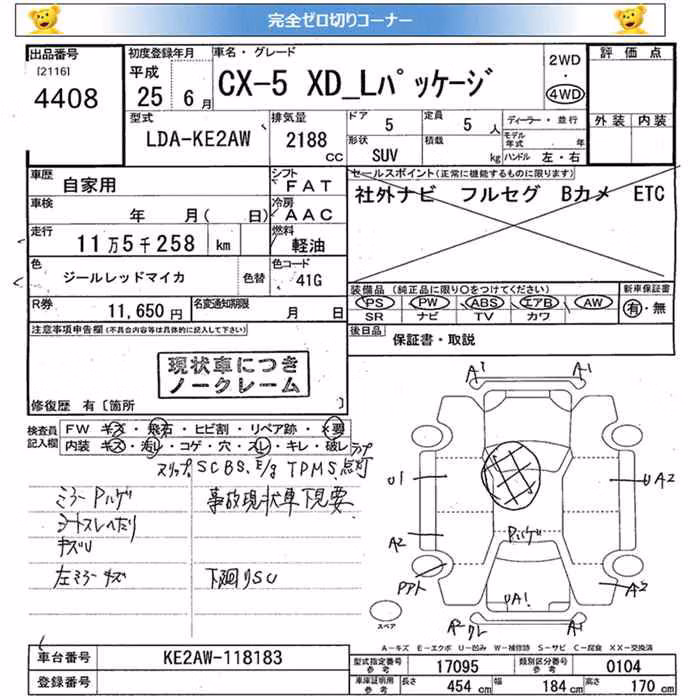 完全ゼロ切りコーナー
出品番号
[2116]
4408
初度登録年月
平成
25 6月
車名・グレード
CX-5 XD_Lパッケージ
2WD
・
4WD
評価点
外装 内装
型式
LDA-KE2AW
排気量
2188
CC
ドア
5
定員
5 人
形状
SUV
積載
kg
ディーラー・並行
モデル
年式 年
ハンドル 左・右
車歴
自家用
シフト
FAT
車検
年 月( 日)
冷房
AAC
走行
11万5千258 km
燃料
軽油
色
ジールレッドマイカ
色替
色コード
41G
R券
11,650円
名変通知期限
月 日
セールスポイント(正常に機能するものに限ります)
社外ナビ フルセグ Bカメ ETC
装備品(純正品に限り○をつけてください)
PS PW ABS エアB AW
SR ナビ TV カワ
新車保証書
有・無
後日品
保証書・取説
注意事項申告欄(不具合内容等は具体的に記入して下さい)
現状車につき
ノークレーム
修復歴 有〔箇所 〕
検査員
記入欄
FW キズ・飛石・ヒビ割・リペア跡・X要
内装 キズ・汚れ・コゲ・穴・スレ・キレ・破レ
スリップ、SCBS、E/g TPMS、点灯
ミラーPハゲ
シートスレへたり
キズU
左ミラーキズ
事故現状車下見要
下廻りSU
A1 A1
U1
UA2
A2
Pハゲ
UA1
A2
A2 ワレ
スペア
A-キズ E-エクボ U-凹み W-補修跡 S-サビ C-腐食 XX-交換済
車台番号
KE2AW-118183
登録番号
型式指定番号
参考
17095
類別区分番号
参考
0104
車庫証明用
参考
長さ
454 cm
幅
184 cm
高さ
170 cm